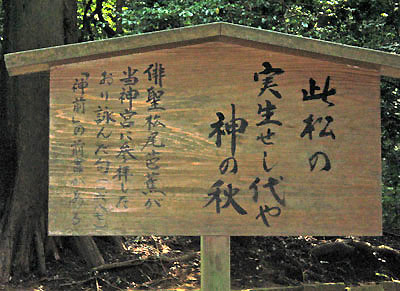 此松の
実生せし代や
神の秋
俳聖松尾芭蕉が
当神宮に参拝した
おり詠んだ句である
「神前」の前書がある